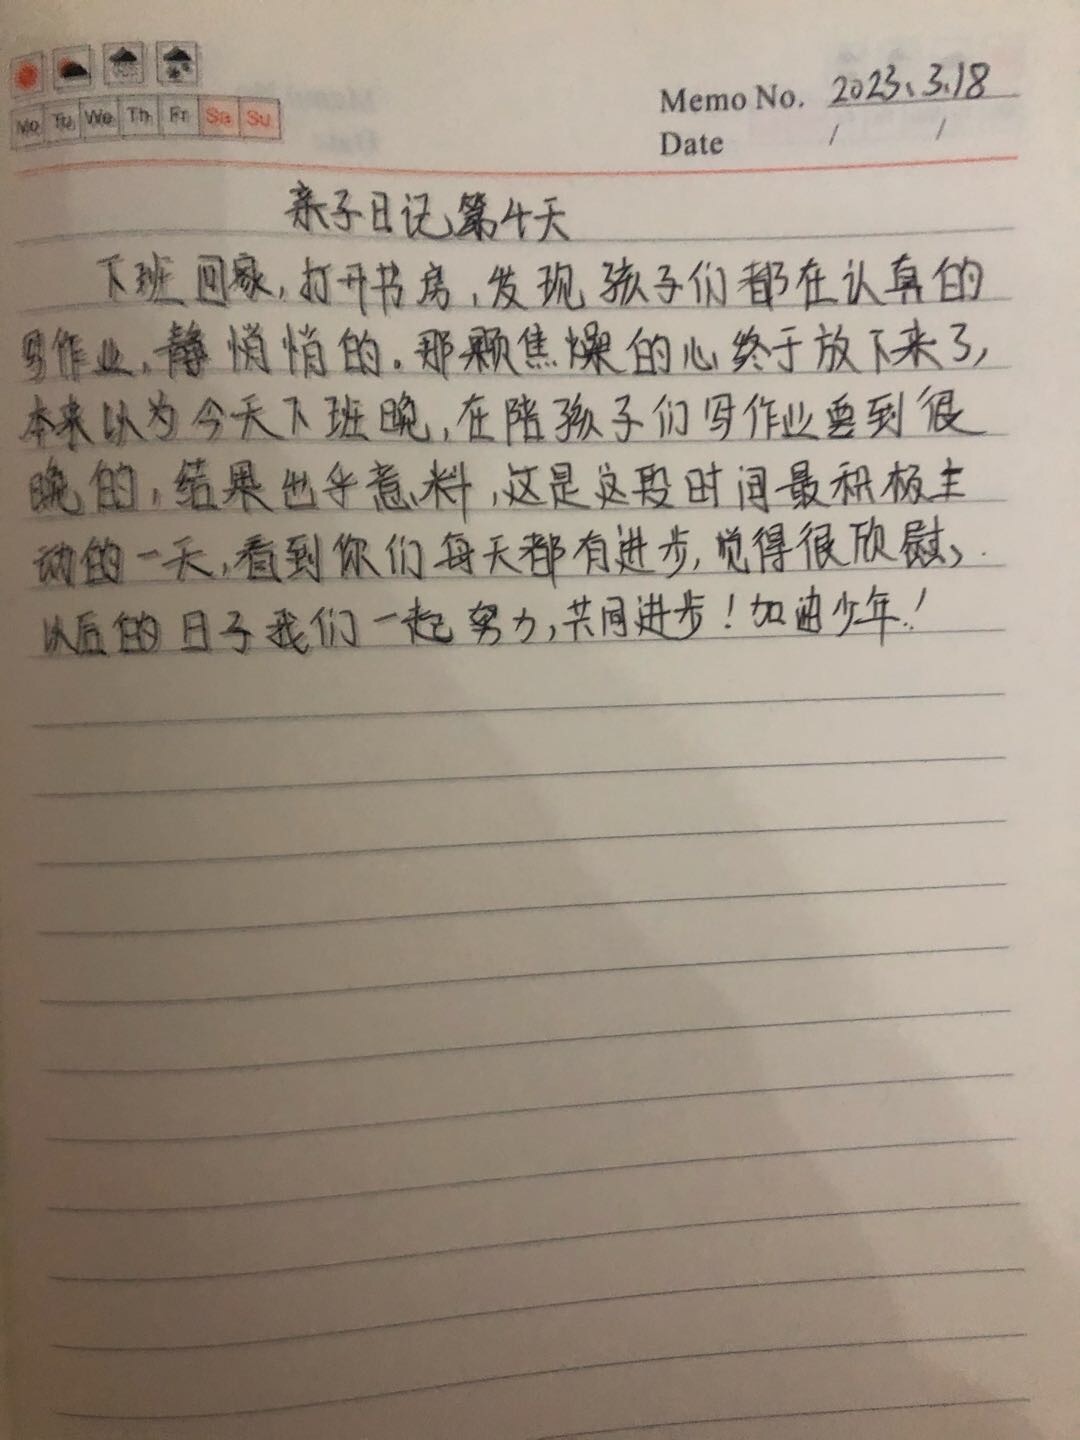 Mo Tu We Th Fr Sa Su
Memo No. 2023.3.18
Date / /
亲子日记第4天
下班回家,打开书房,发现孩子们都在认真的
写作业,静悄悄的。那颗焦燥的心终于放下来了,
本来以为今天下班晚,在陪孩子们写作业要到很
晚的,结果出乎意料,这是这段时间最积极主
动的一天,看到你们每天都有进步,觉得很欣慰,
以后的日子我们一起努力,共同进步!加油少年!